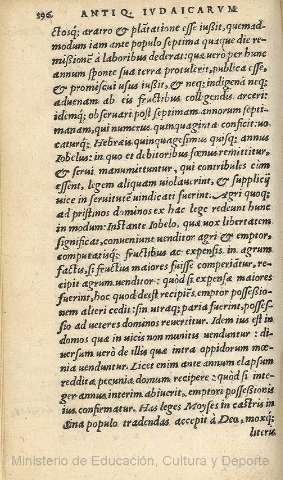 396. ANTIQ. IVDAICARVM
ctosq; aratro & plātatione esse iussit, quemad-
modum iam ante populo septima quaque die re-
missionē à laboribus dederat: quæ verò per hunc
annum sponte sua terra protulerit, publica esse,
& promiscui vsus iussit, & neq; indigenā neq;
aduenam ab eis fructibus colligendis arceri:
idemq; obseruari post septimam annorum septi-
manam, qui numerus quinquaginta conficit: vo-
caturq; Hebræis quinquagesimus quisq; annus
Iobelus: in quo et debitoribus fœnus remittitur,
& serui manumittuntur, qui contribules cùm
essent, legem aliquam violauerint, & supplicij
vice in seruitutē vindicati fuerint. Agri quoq;
ad pristinos dominos ex hac lege redeunt hunc
in modum: Instante Iobelo, quæ vox libertatem
significat, conueniunt venditor agri & emptor,
computatisq; fructibus ac expensis in agrum
factis, si fructus maiores fuisse comperiātur, re-
cipit agrum venditor: quòd si expensa maiores
fuerint, hoc quod deest recipiēs, emptor possessio-
nem alieri cedit: sin vtraq; paria fuerint, posses-
sio ad veteres dominos reuertitur. Idem ius est in
domos quæ in vicis non munitis venduntur: di-
uersum verò de illis quæ intra oppidorum mœ-
nia venduntur. Licet enim ante annum elapsum
reddita pecunia domum recipere: quòd si inte-
ger annus interim abiuerit, emptori possessionis
ius confirmatur. Has leges Moyses in castris in
Sina populo tradendas accepit à Deo, moxq;
literis
Ministerio de Educación, Cultura y Deporte